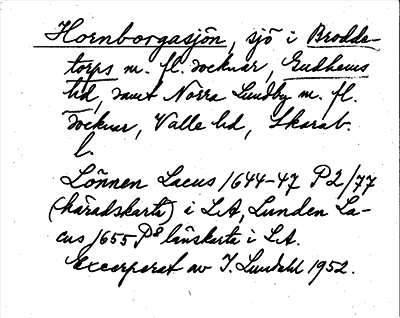 Hornborgasjön, sjö i Brodde-
torps m. fl. socknar, Gudhems
hd, samt Norra Lundby m. fl.
socknar, Valle hd, Skarab.
l.
Lönnen Lacus 1644-47 P2/77
(häradskarta) i LA, Lunden La-
cus 1655 P8 länskarta i LA.
Excerperat av I. Lundahl 1952.